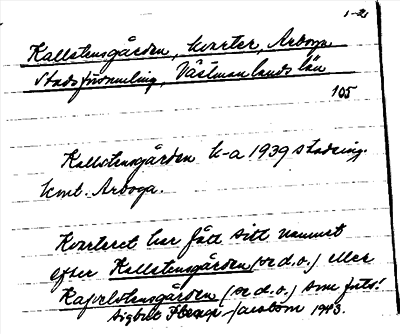 1-2
Kallstensgården, kvarter, Arboga
stadsförsamling, Västmanlands län
105
Kallstensgården k-a 1939 stadsing.
kont. Arboga.
Kvarteret har fått sitt namn
efter Kallstensgården (se d.o.) eller
Kapellstensgården (se d.o.) som
Jacobson 1943.